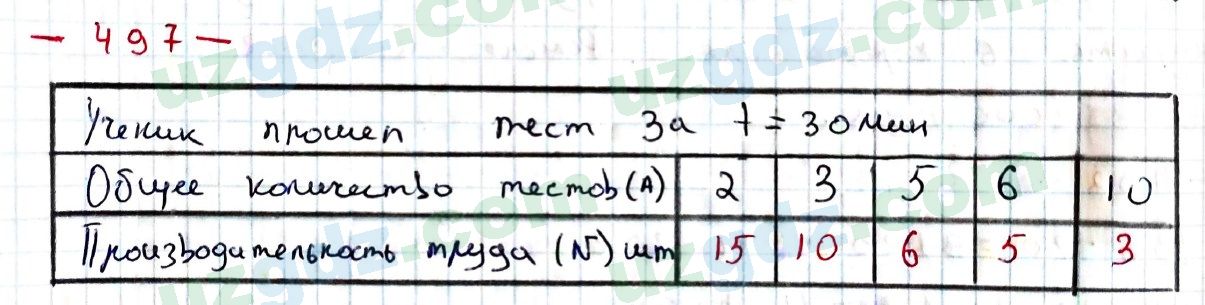 - 497 -
Ученик прошел тест за t = 30 мин
Общее количество тестов (A) 2 3 5 6 10
Производительность труда (N) шт 15 10 6 5 3
uzgdz.com uzgdz.com
uzgdz.com uzgdz.com